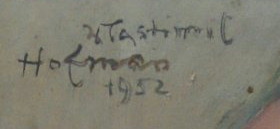 Wlastimil
Hofman
1952